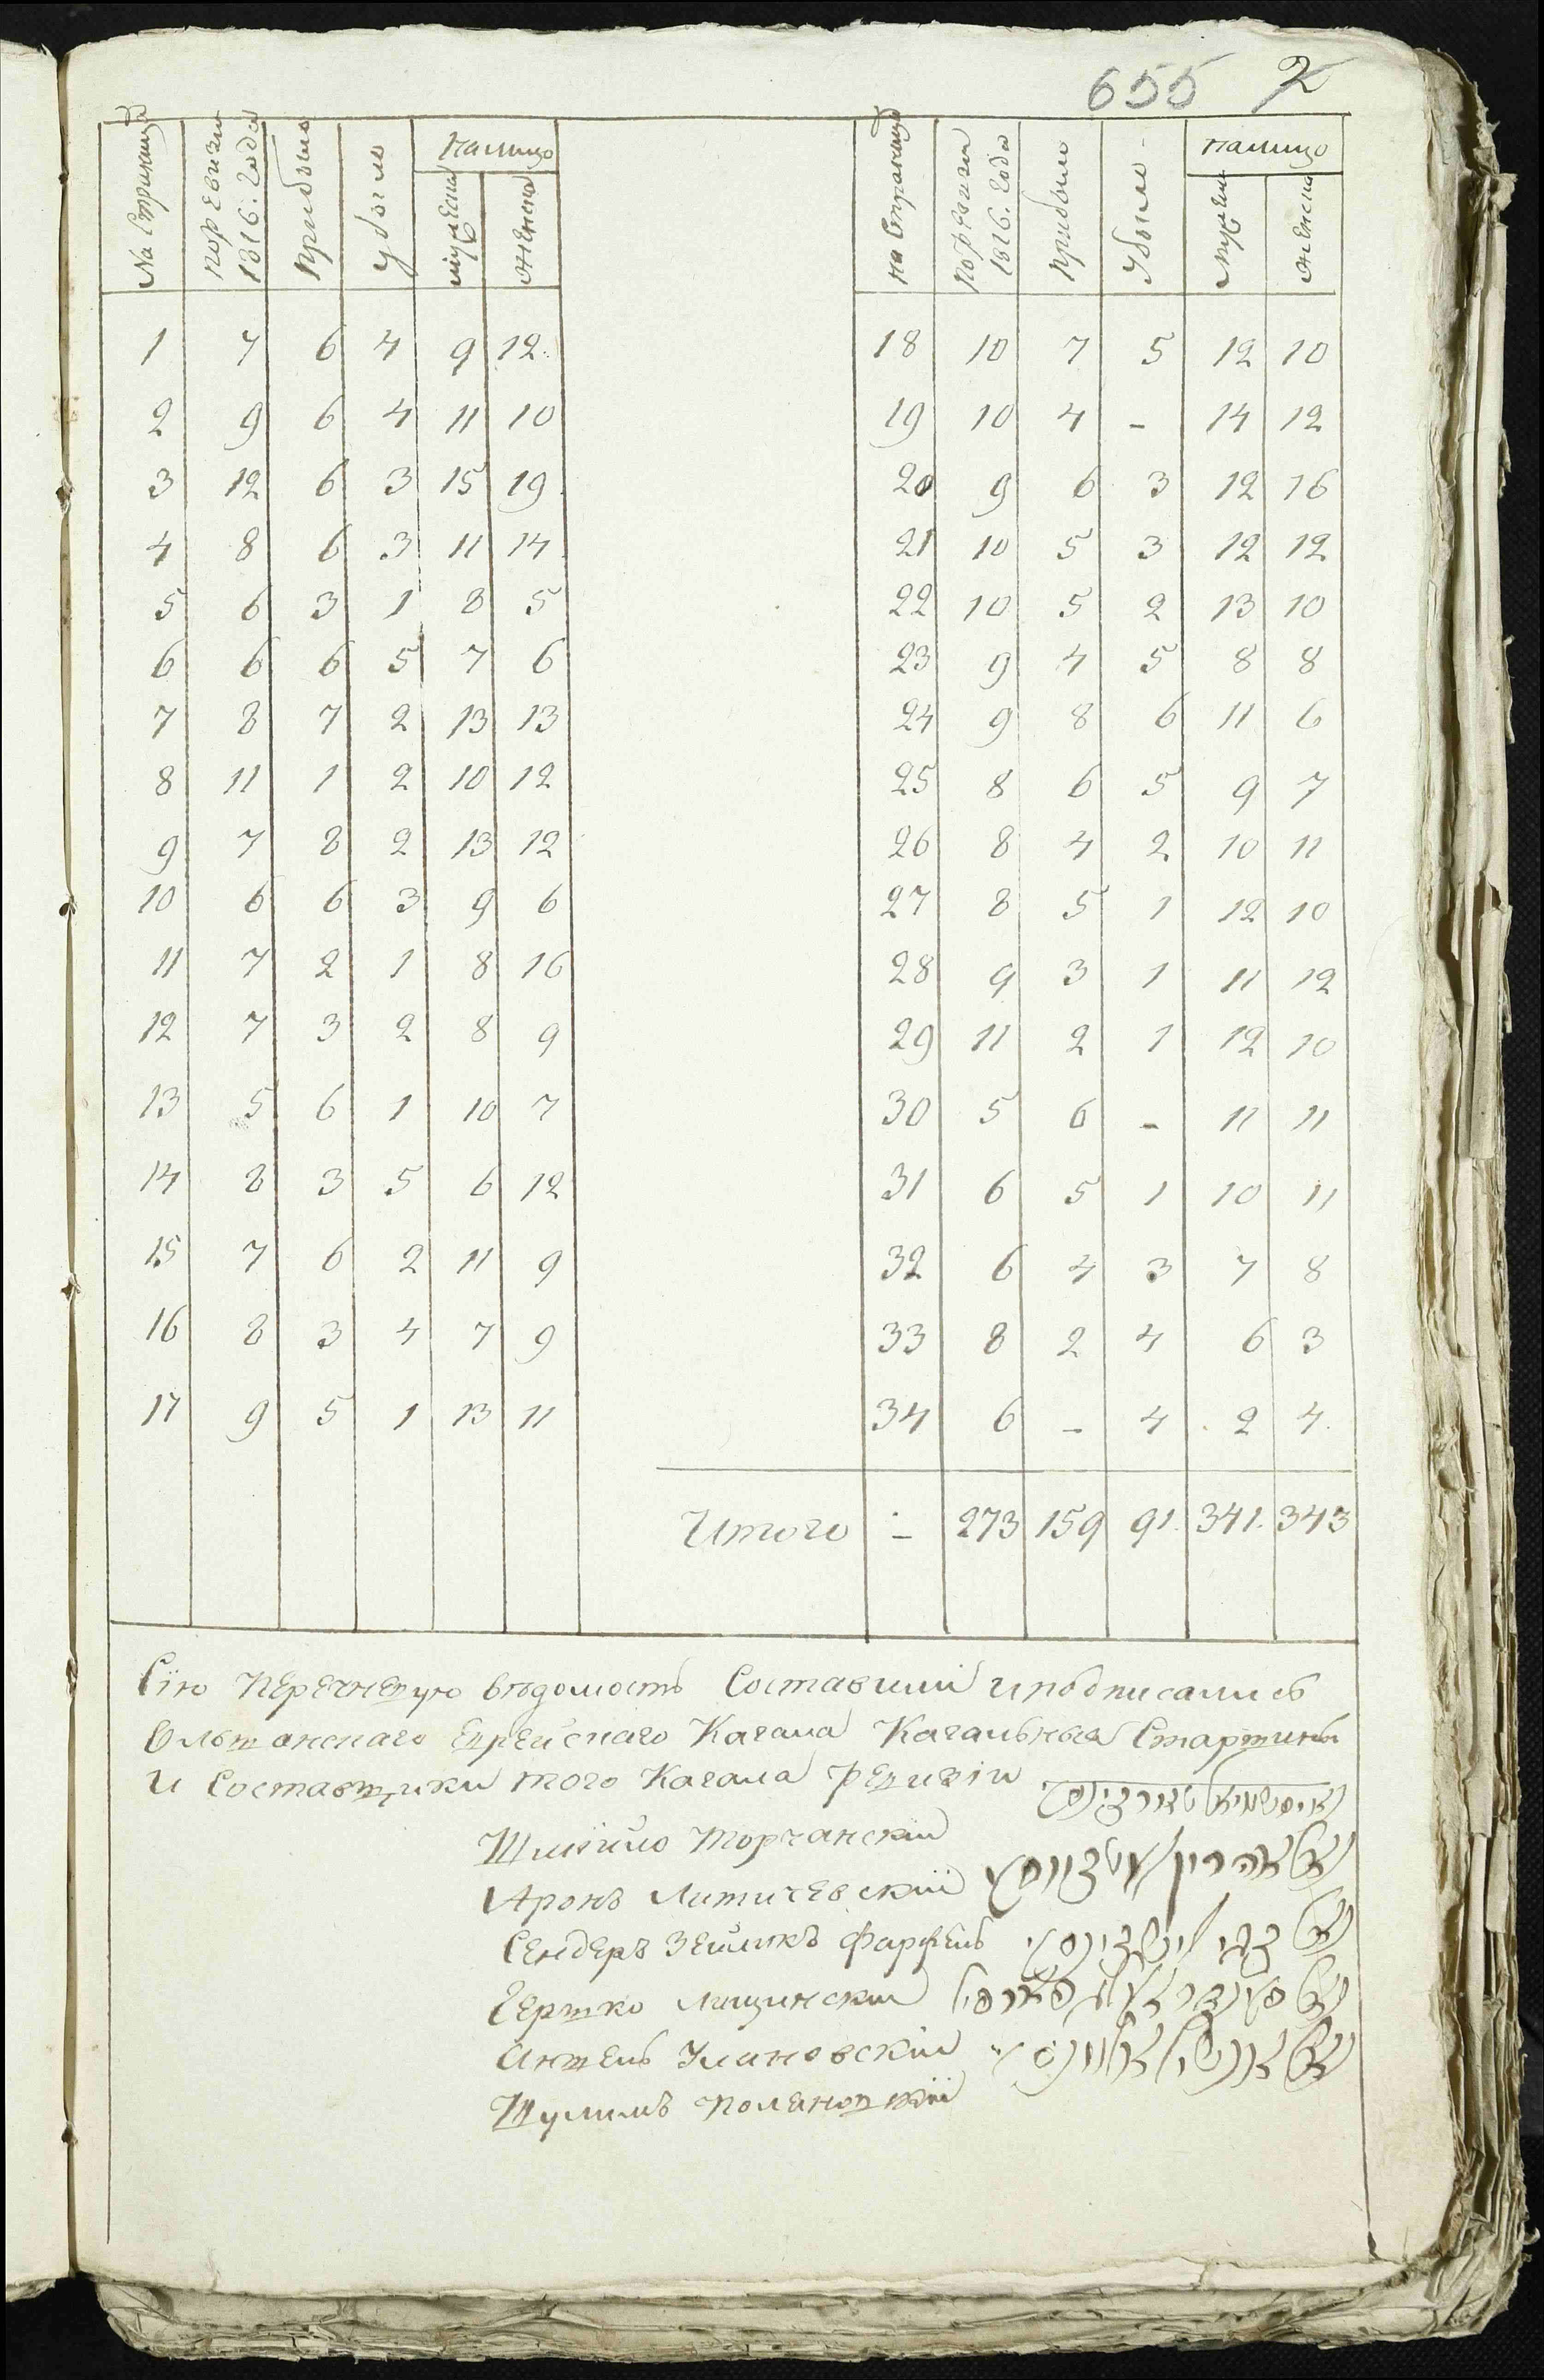 655 2
На Страницѣ | по ревизии 1816. года | прибыло | убыло | налицо: мужеска | женска
на Страницѣ | по ревизии 1816. года | прибыло | убыло | налицо: мужеска | женска
1 7 6 4 9 12 18 10 7 5 12 10
2 9 6 4 11 10 19 10 4 - 14 12
3 12 6 3 15 19 20 9 6 3 12 16
4 8 6 3 11 14 21 10 5 3 12 12
5 6 3 1 8 5 22 10 5 2 13 10
6 6 6 5 7 6 23 9 4 5 8 8
7 8 7 2 13 13 24 9 8 6 11 6
8 11 1 2 10 12 25 8 6 5 9 7
9 7 8 2 13 12 26 8 4 2 10 11
10 6 6 3 9 6 27 8 5 1 12 10
11 7 2 1 8 16 28 9 3 1 11 12
12 7 3 2 8 9 29 11 2 1 12 10
13 5 6 1 10 7 30 5 6 - 11 11
14 8 3 5 6 12 31 6 5 1 10 11
15 7 6 2 11 9 32 6 4 3 7 8
16 8 3 4 7 9 33 8 2 4 6 3
17 9 5 1 13 11 34 6 - 4 2 4
Итого - 273 159 91. 341. 343
Сію перечневую вѣдомость Составили и подписались
Ольшанскаго Еврейскаго Кагала Кагальныя Старшины
и Составщики того Кагала ревизіи
Шмойло Торчанскій
Аронъ Литичевскій
Сендеръ Зейликъ
Гершко Лищинскій
Аншель Улановскій
Шулимъ